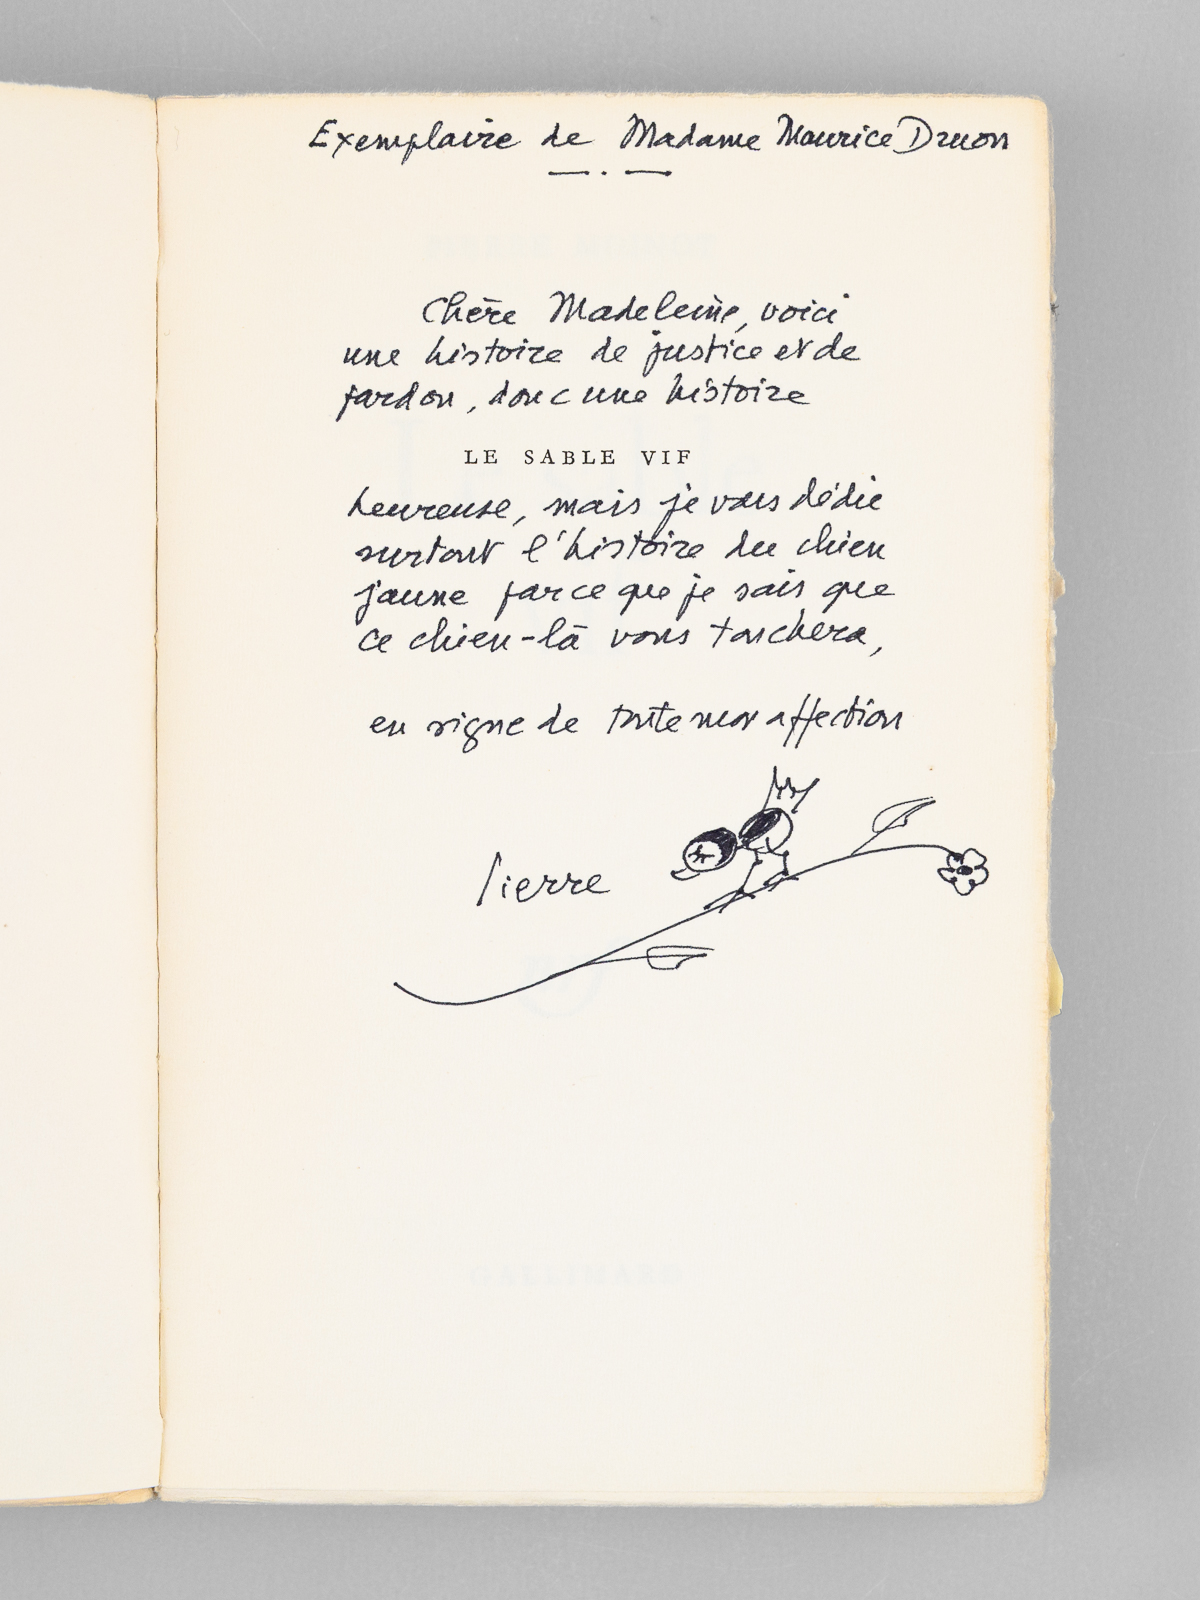 Exemplaire de Madame Maurice Druon
Chère Madeleine, voici
une histoire de justice et de
pardon, donc une histoire
LE SABLE VIF
heureuse, mais je vous dédie
surtout l'histoire du chien
jaune parce que je sais que
ce chien-là vous touchera,
en signe de toute mon affection
Pierre
GALLIMARD